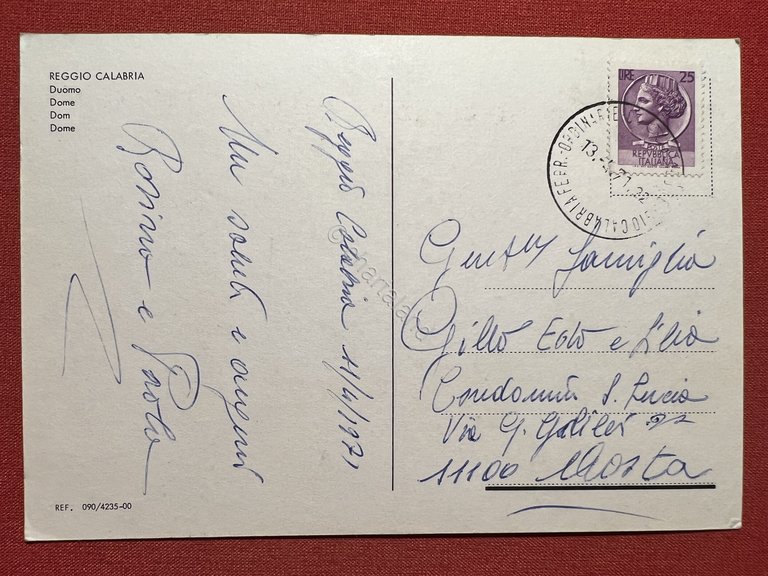 REGGIO CALABRIA
Duomo
Dome
Dom
Dome
Reggio Calabria 11/4/1971
saluti e auguri
Rosina e Paola
LIRE 25
REPVBBLICA
ITALIANA
REGGIO CALABRIA FERR.-ORDINARIE
13.-4.71. 22
Famiglia
Gillo Edo e Lilia
Condominio S. Lucia
Via G. Galilei
11100 Aosta
REF. 090/4235-00